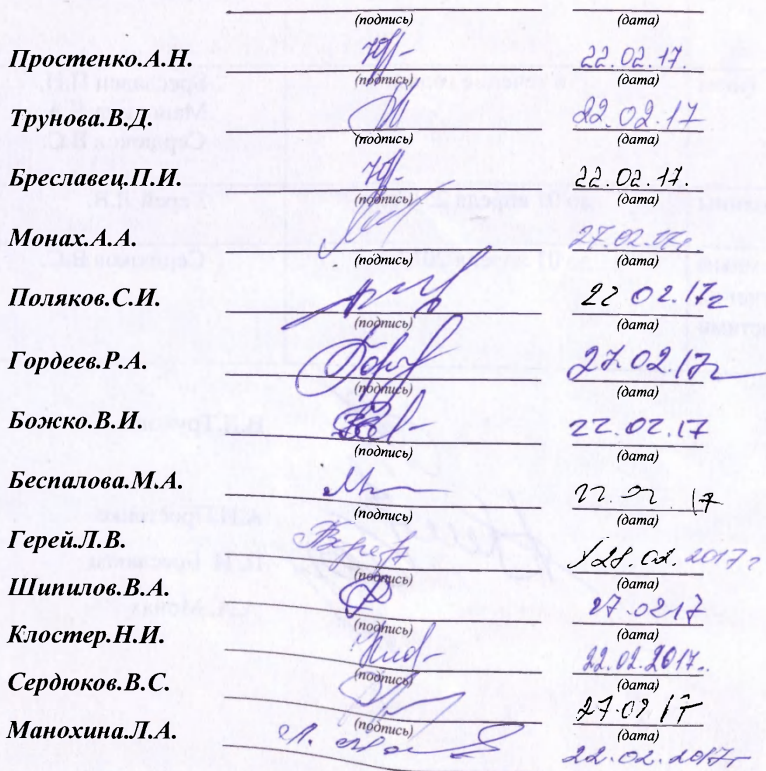 (подпись) (дата)
Простенко.А.Н. 22.02.17.
(подпись) (дата)
Трунова.В.Д. 22.02.17
(подпись) (дата)
Бреславец.П.И. 22.02.17.
(подпись) (дата)
Монах.А.А. 27.02.17г
(подпись) (дата)
Поляков.С.И. 22 02.17г
(подпись) (дата)
Гордеев.Р.А. 27.02.17г
(подпись) (дата)
Божко.В.И. 22.02.17
(подпись) (дата)
Беспалова.М.А. 22.02.17
(подпись) (дата)
Герей.Л.В. 2017г
(подпись) (дата)
Шипилов.В.А. 27.0217
(подпись) (дата)
Клостер.Н.И. 22.02.2017.
(подпись) (дата)
Сердюков.В.С. 27.02 17
(подпись) (дата)
Манохина.Л.А. 22.02.2017г